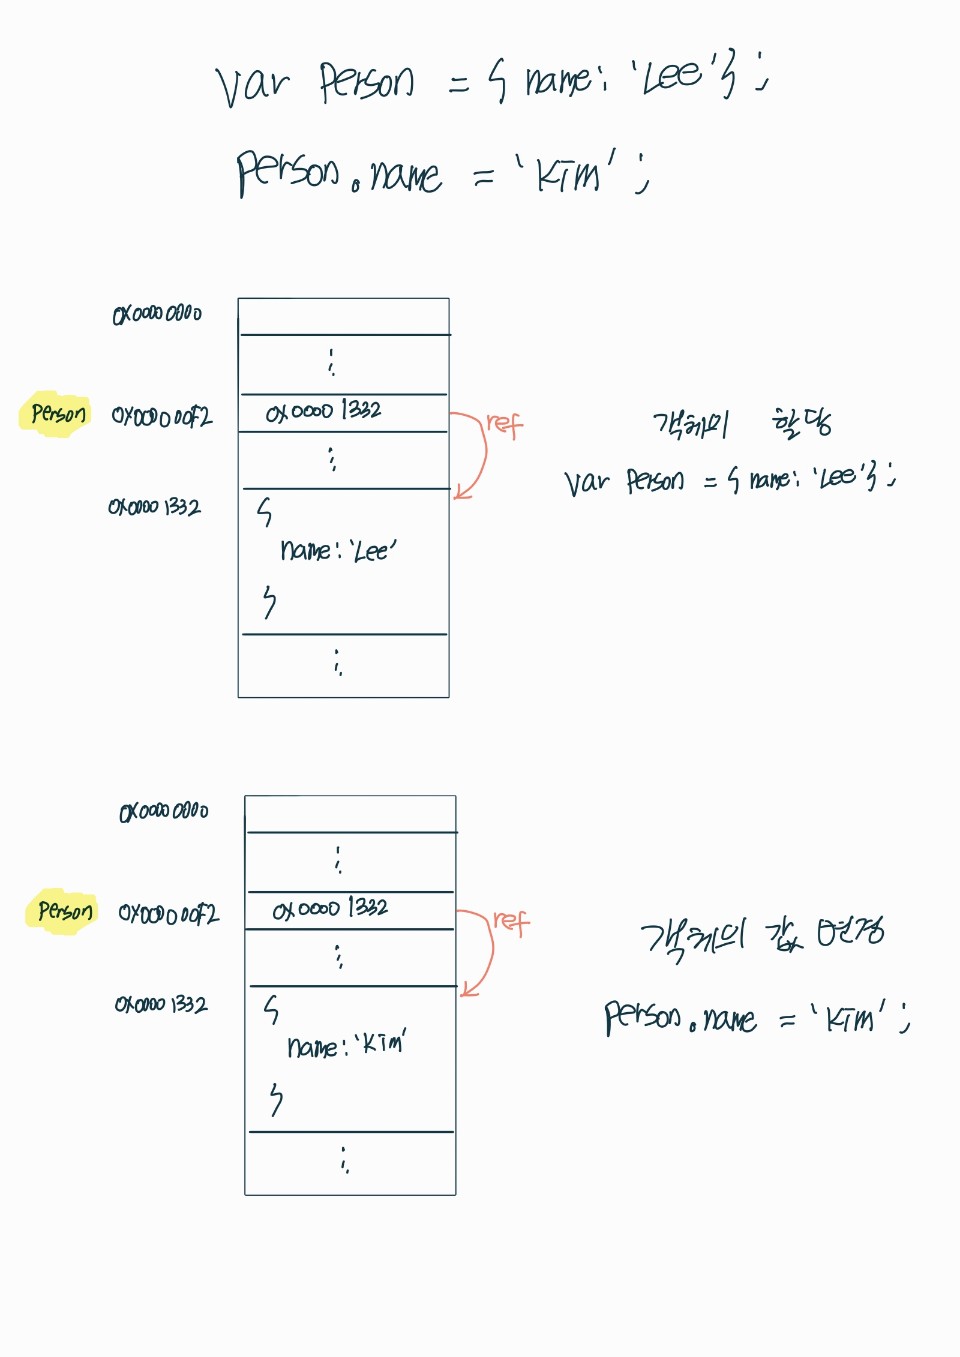 var person = { name: 'Lee' };
person.name = 'Kim';
0x00000000
person 0x000000F2 0x00001332 ref
0x00001332 {
name: 'Lee'
}
객체의 할당
var person = { name: 'Lee' };
0x00000000
person 0x000000F2 0x00001332 ref
0x00001332 {
name: 'Kim'
}
객체의 값 변경
person.name = 'Kim';